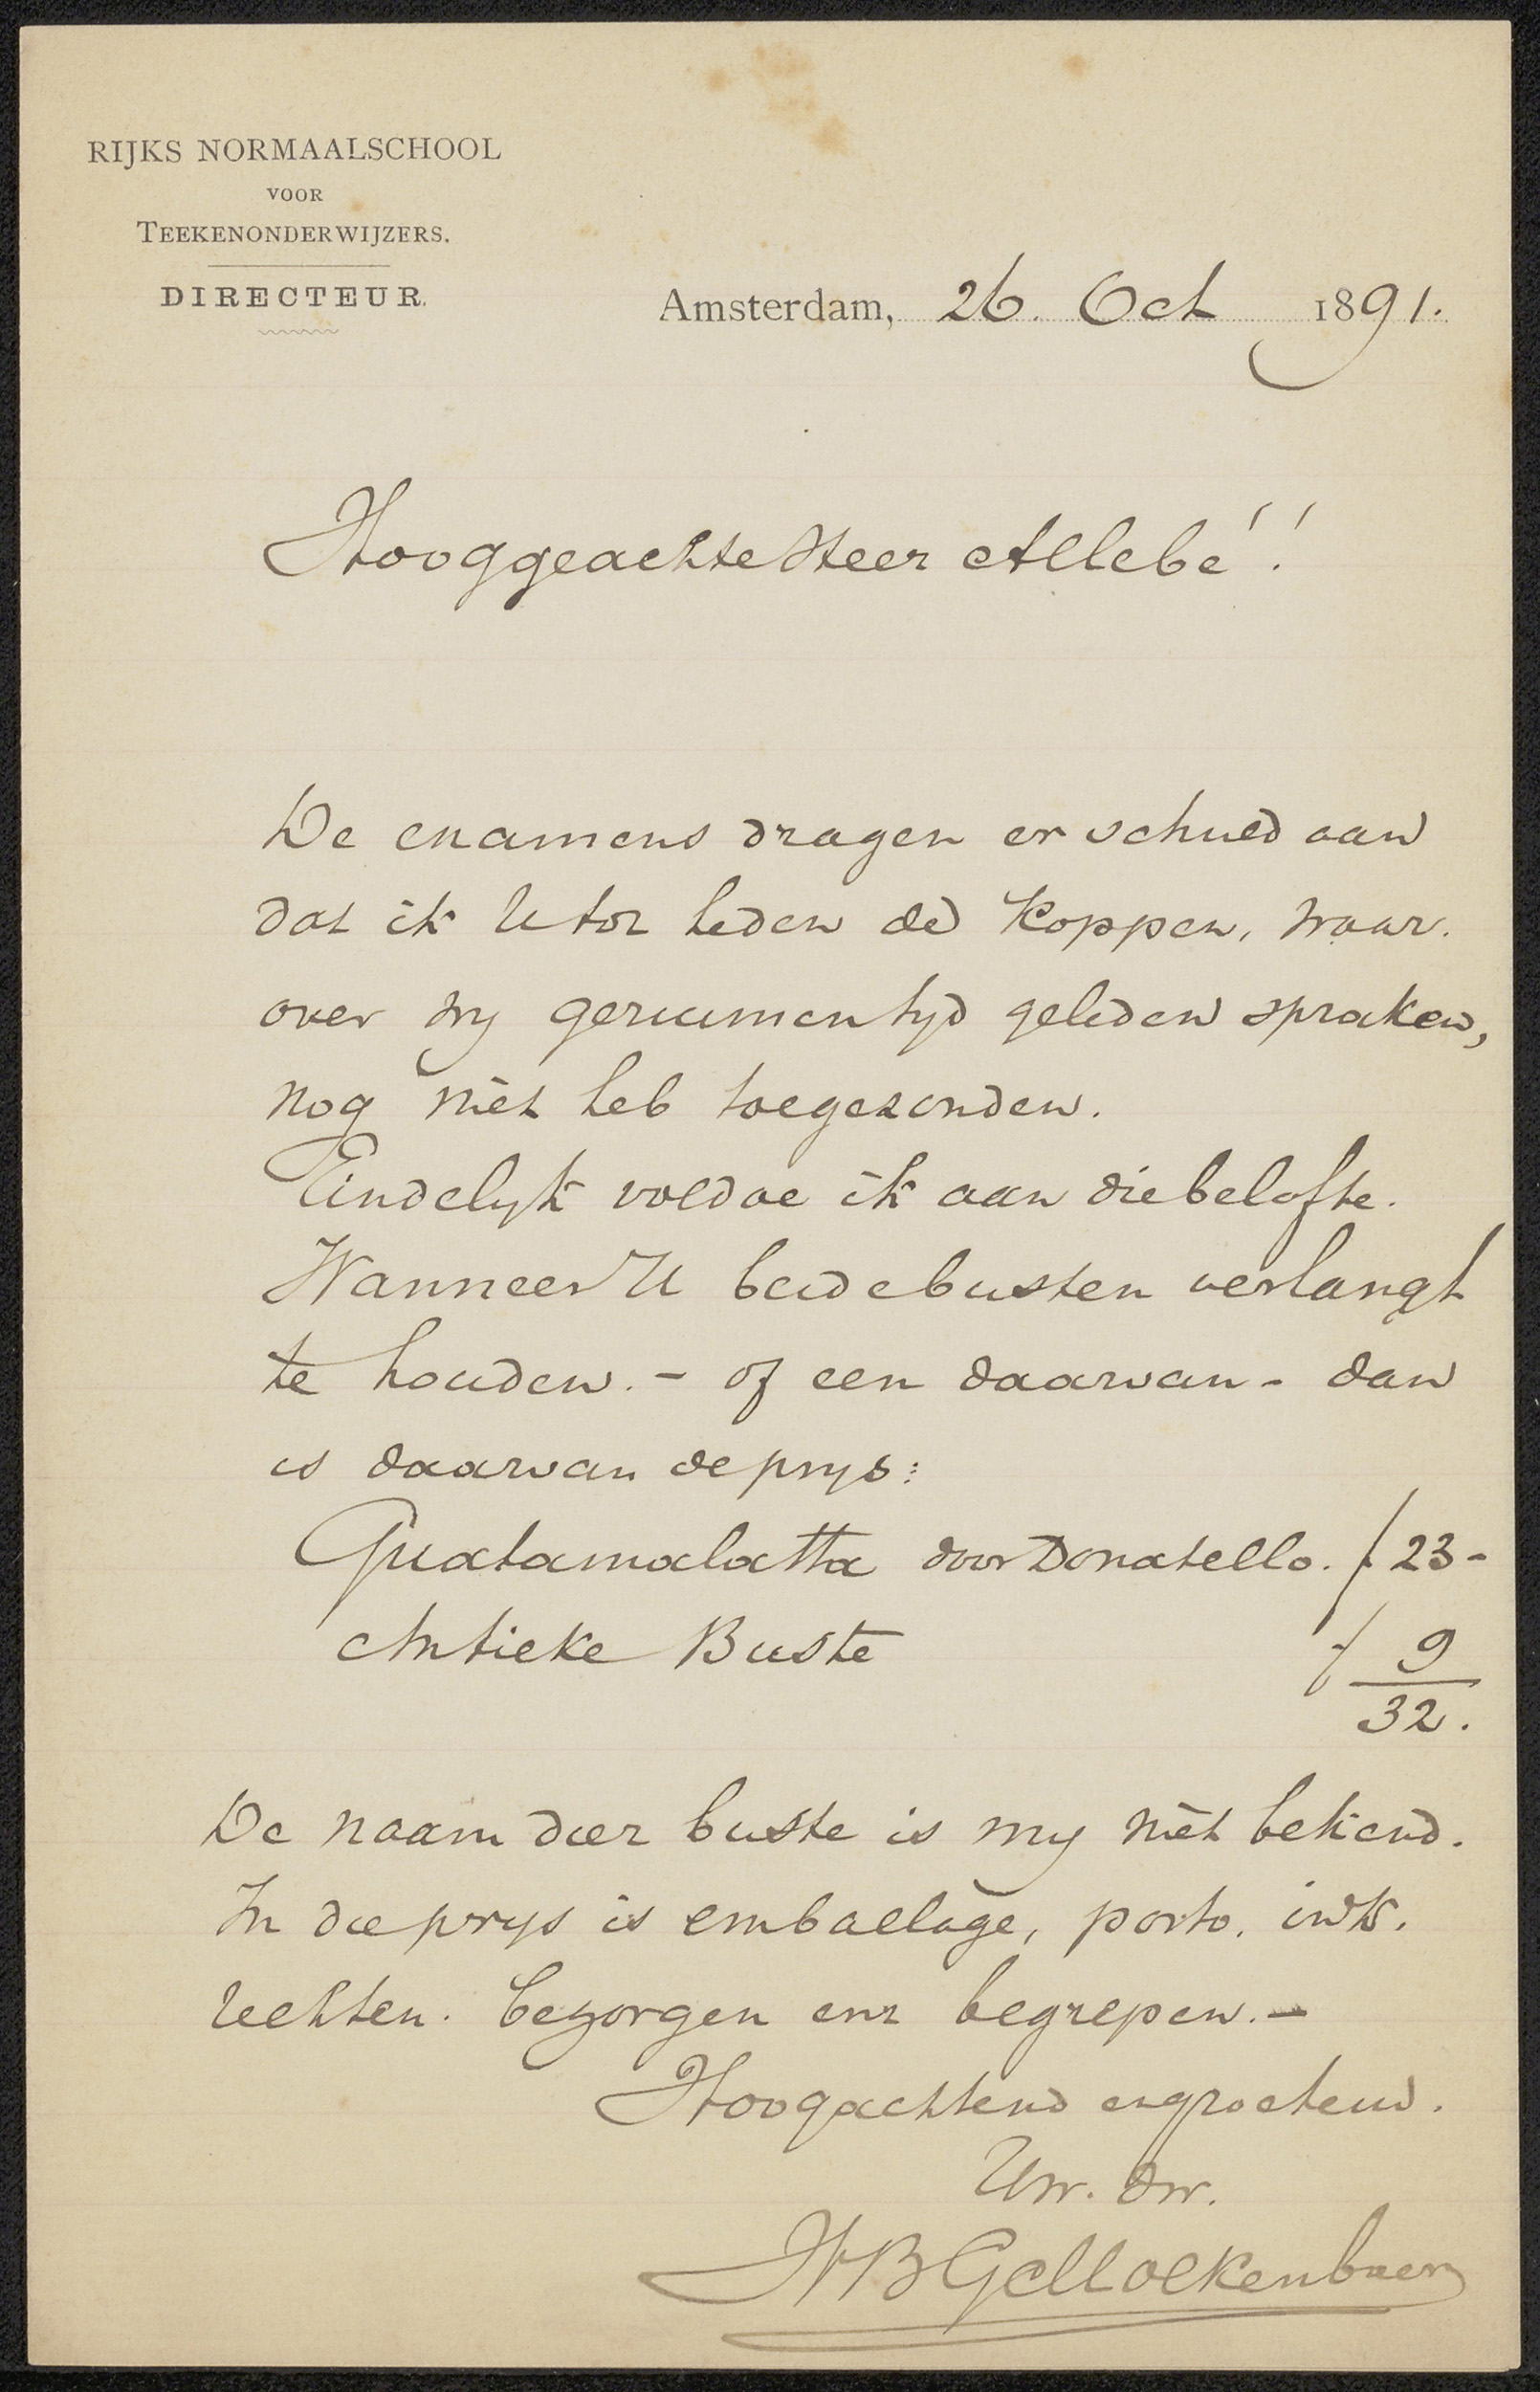 RIJKS NORMAALSCHOOL
VOOR
TEEKENONDERWIJZERS.
DIRECTEUR.
Amsterdam, 26. Oct 1891.
Hooggeachte Heer Allebé!
De examens dragen er schuld aan
dat ik U tot heden de koppen, waar.
over wy geruimen tyd geleden spraken,
nog niet heb toegezonden.
Eindelyk voldoe ik aan die belofte.
Wanneer U beide busten verlangt
te houden. - of een daarvan - dan
is daarvan de prys:
Guatamalatta door Donatello. f 23 -
Antieke Buste f 9
32.
De naam dier buste is my niet bekend.
In die prys is emballage, porto. ink.
rechten. bezorgen enz begrepen. -
Hoogachtend en groetend.
Uw. dw.
WBGMolkenboer